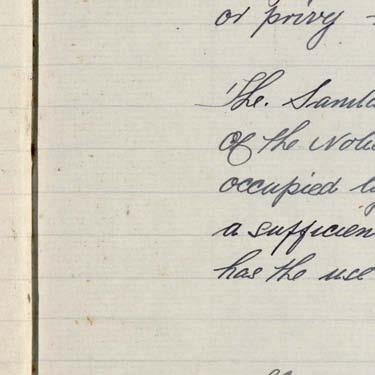 or privy -
The. Sanita
of the No
occupied by
a sufficien
has the use